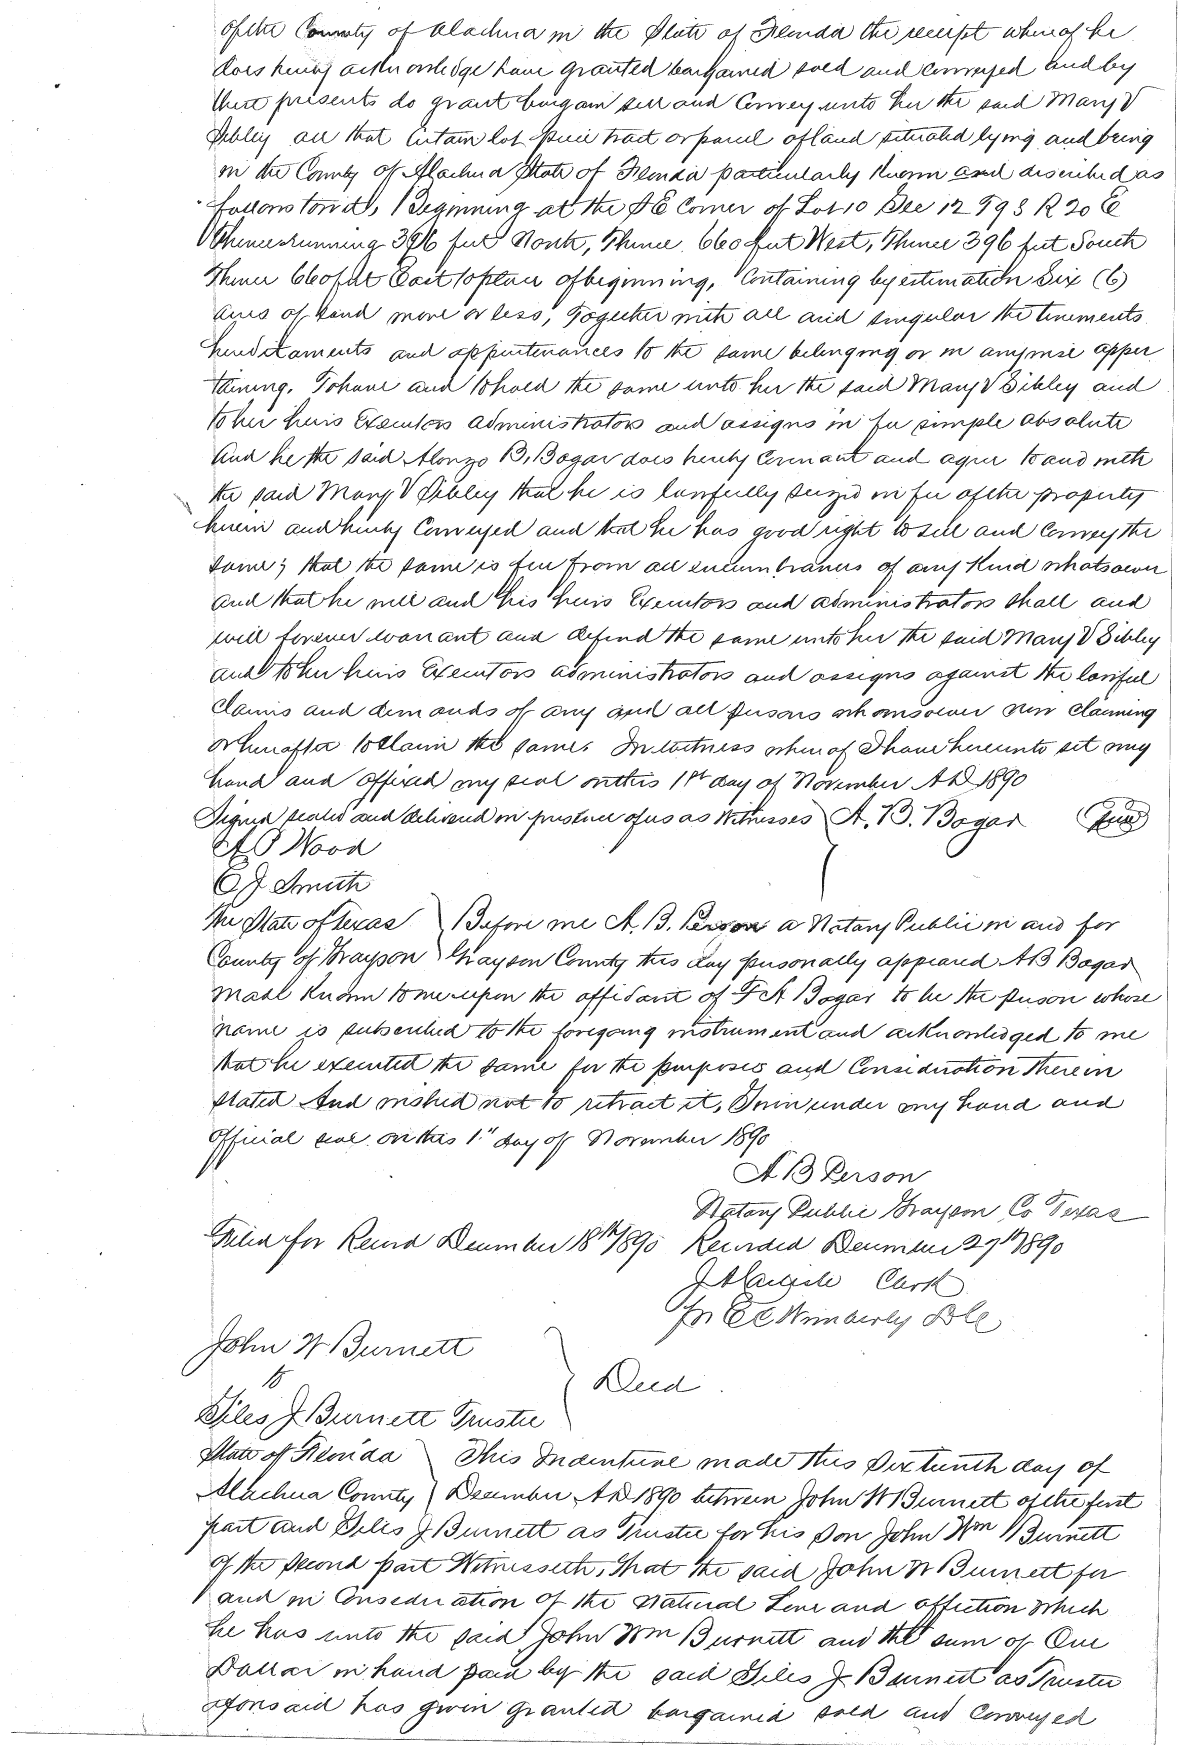 of the County of Alachua in the State of Florida the receipt whereof he
does hereby acknowledge have granted bargained sold and conveyed and by
these presents do grant bargain sell and Convey unto her the said Mary V
Sibley all that certain lot piece tract or parcel of land situated lying and being
in the County of Alachua State of Florida particularly known and described as
follows towit, Beginning at the SE Corner of Lot 10 Sec 12 T 9 S R 20 E
Thence running 396 feet North, Thence 660 feet West, Thence 396 feet South
Thence 660 feet East to place of beginning, Containing by estimation Six (6)
acres of land more or less, Together with all and singular the tenements
hereditaments and appurtenances to the same belonging or in anywise apper
taining. To have and to hold the same unto her the said Mary V Sibley and
to her heirs Executors administrators and assigns in fee simple absolute
And he the said Alonzo B. Bogar does hereby Covenant and agree to and with
the said Mary V Sibley that he is lawfully seized in fee of the property
herein and hereby Conveyed and that he has good right to sell and Convey the
same; that the same is free from all encumbrances of any Kind whatsoever
and that he will and his heirs Executors and administrators shall and
will forever warrant and defend the same unto her the said Mary V Sibley
and to her heirs Executors administrators and assigns against the lawful
Claims and demands of any and all persons whomsoever now claiming
or hereafter to Claim the same. In witness whereof I have hereunto set my
hand and affixed my seal on this 1st day of November A.D. 1890
Signed sealed and delivered in presence of us as Witnesses ) A. B. Bogar (Seal)
A P Wood
C J Smith
The State of Texas ) Before me A. B. Person a Notary Public in and for
County of Grayson ) Grayson County this day personally appeared A B Bogar
made Known to me upon the affidavit of F A Bogar to be the person whose
name is subscribed to the foregoing instrument and acknowledged to me
that he executed the same for the purposes and Consideration Therein
stated And wished not to retract it, Given under my hand and
official seal on this 1st day of November 1890
A B Person
Notary Public Grayson Co Texas
Filed for Record December 18th 1890 Recorded December 27th 1890
Clerk
Pr E C Wimberly D C
John W Burnett
to } Deed
Giles J Burnett Trustee
State of Florida ) This Indenture made this Sixteenth day of
Alachua County ) December A.D. 1890 between John W Burnett of the first
part and Giles J Burnett as Trustee for his son John Wm Burnett
of the second part Witnesseth, That the said John W Burnett for
and in Consideration of the Natural Love and affection which
he has unto the said John Wm Burnett and the sum of One
Dollar in hand paid by the said Giles J Burnett as Trustee
aforesaid has given granted bargained sold and Conveyed